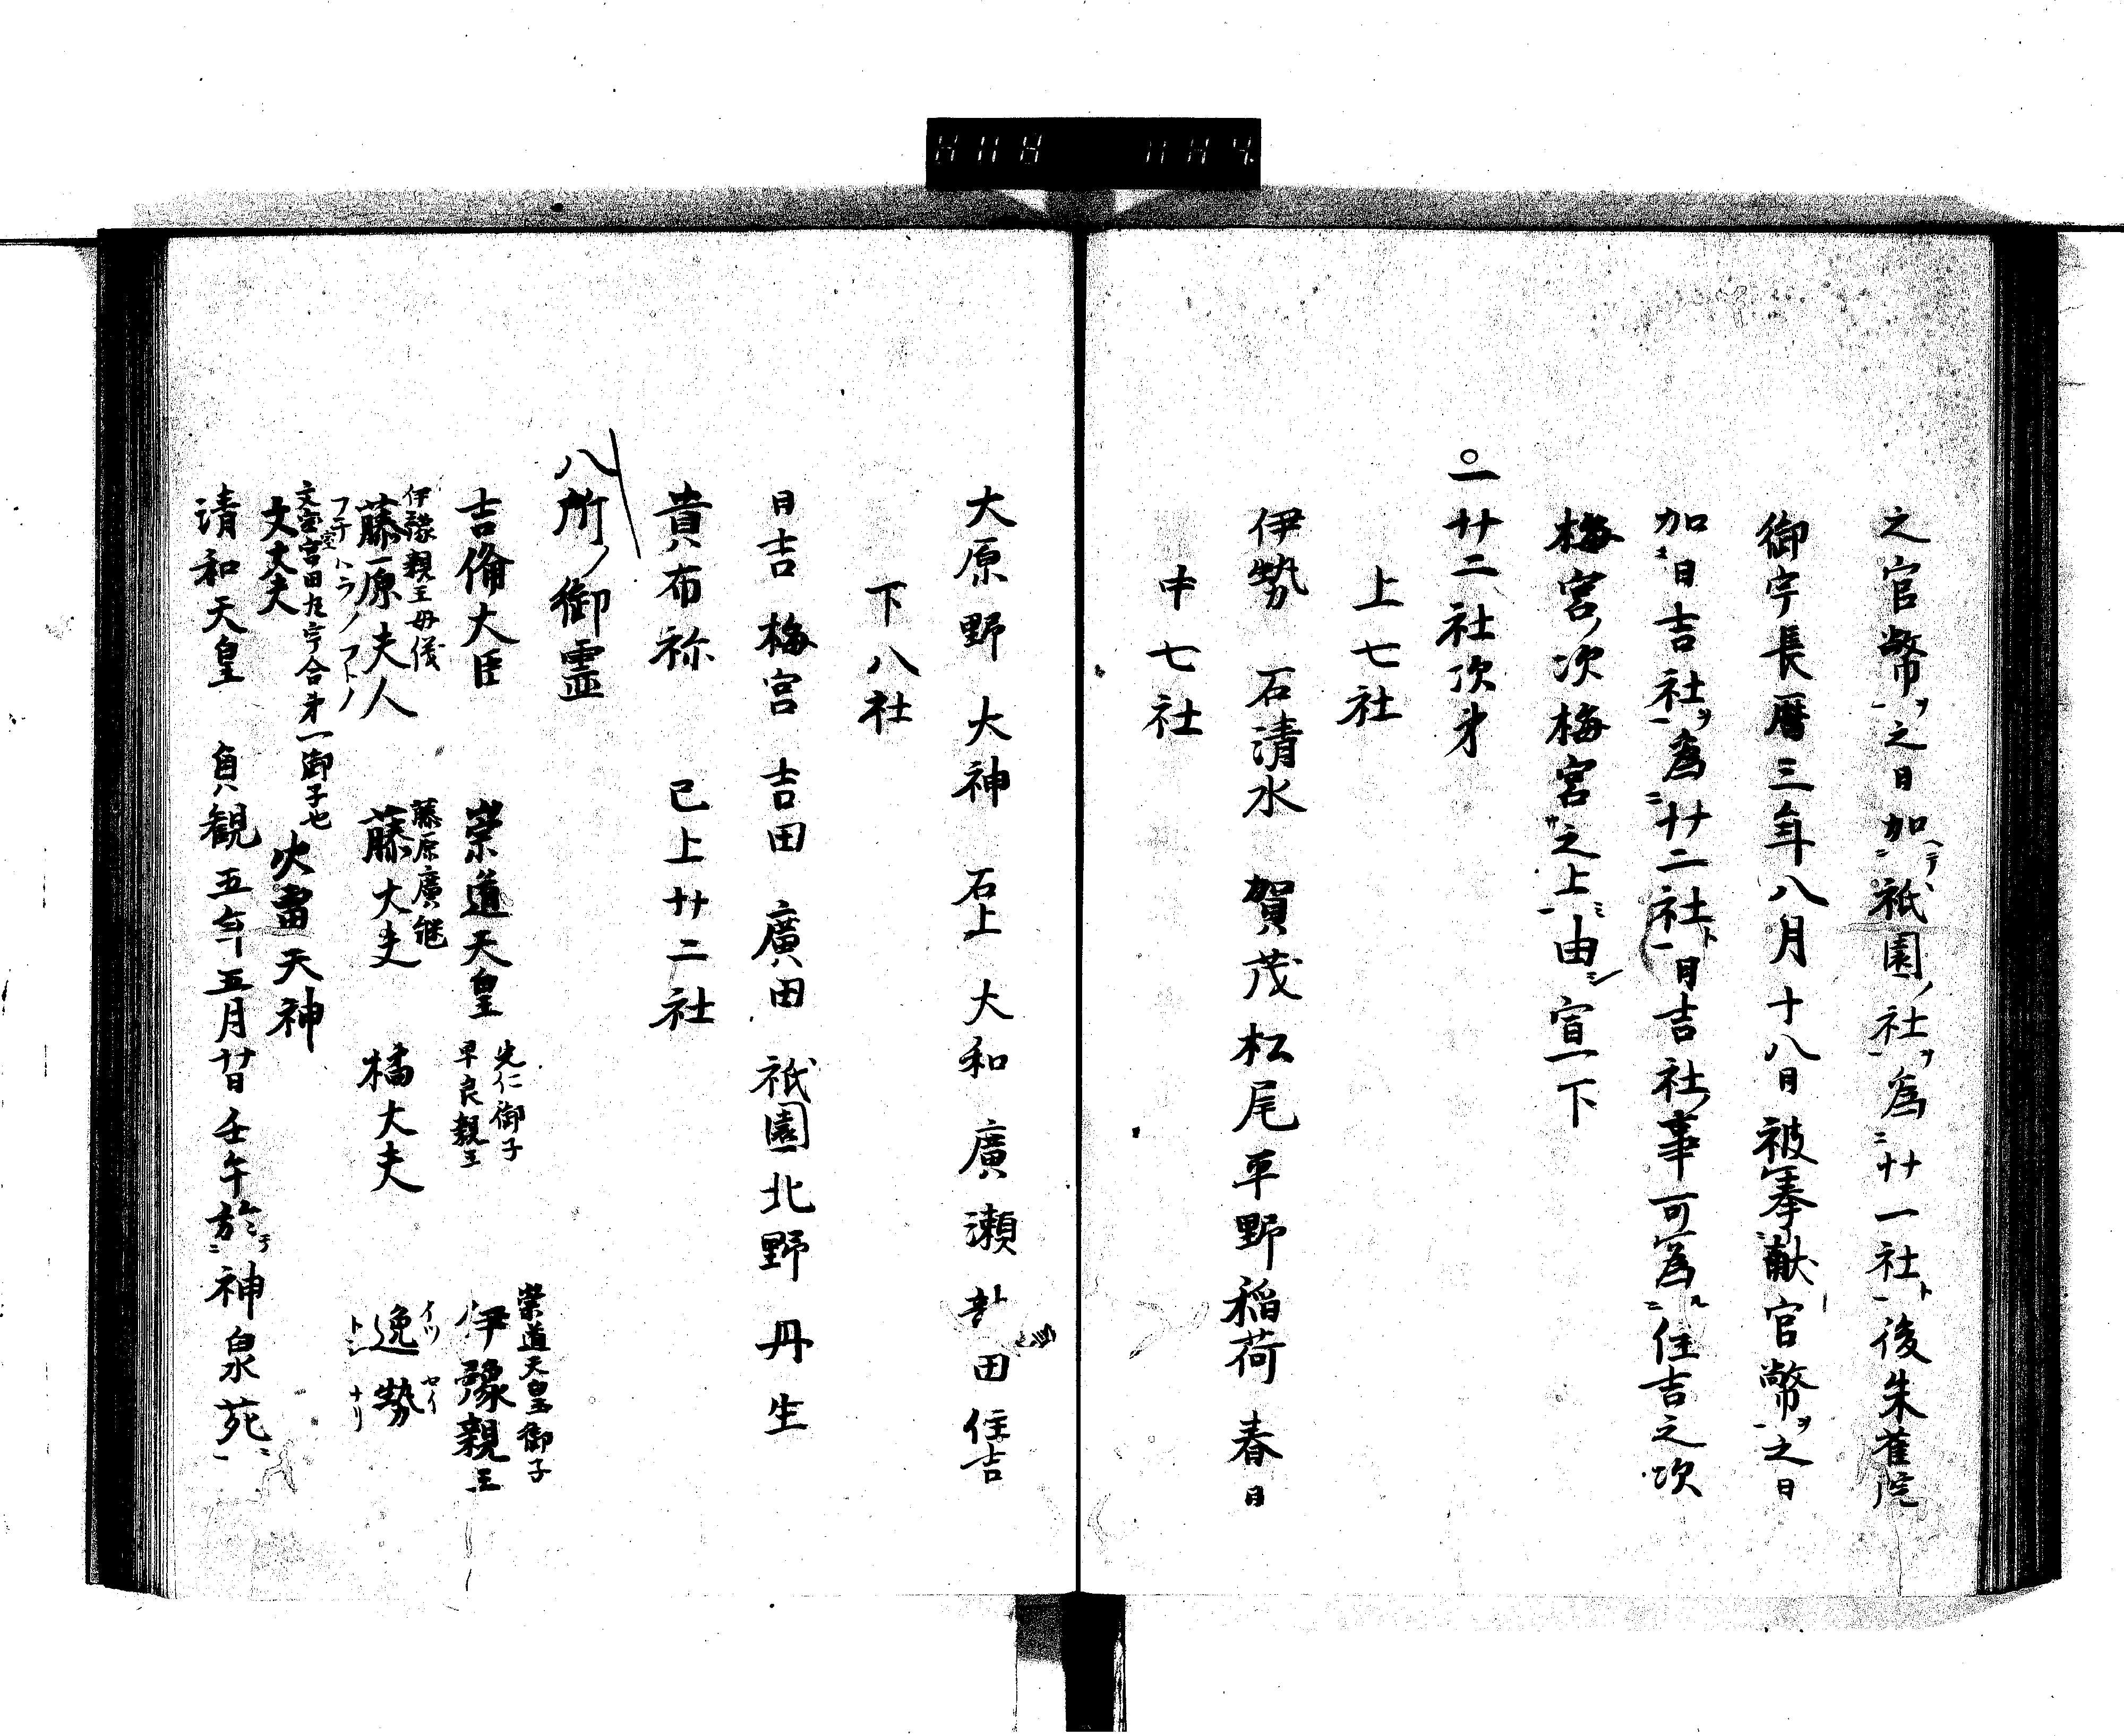 之官幣ヲ之日加ヘテ祇園ノ社ヲ為廿一社ト後朱雀院
御宇長暦三年八月十八日被奉献官幣ヲ之日
加日吉社ヲ為廿二社ト日吉社事可為住吉之次
梅宮ノ次梅宮之上由宣下
○一廿二社次才
上七社
伊勢 石清水 賀茂 松尾 平野 稲荷 春日
中七社
大原野 大神 石上 大和 廣瀬 田 住吉
下八社
日吉 梅宮 吉田 廣田 祇園 北野 丹生
貴布祢 已上廿二社
八所ノ御霊
崇道天皇御子
光仁御子
吉備大臣 崇道天皇 早良親王 伊豫親王
伊豫親王母儀 藤原廣継 イツ セイ
藤原夫人 藤大夫 橘大夫 逸勢
文宮田九 合才一御子也
文大夫 火雷天神
清和天皇 貞観五年五月廿日壬午於神泉苑